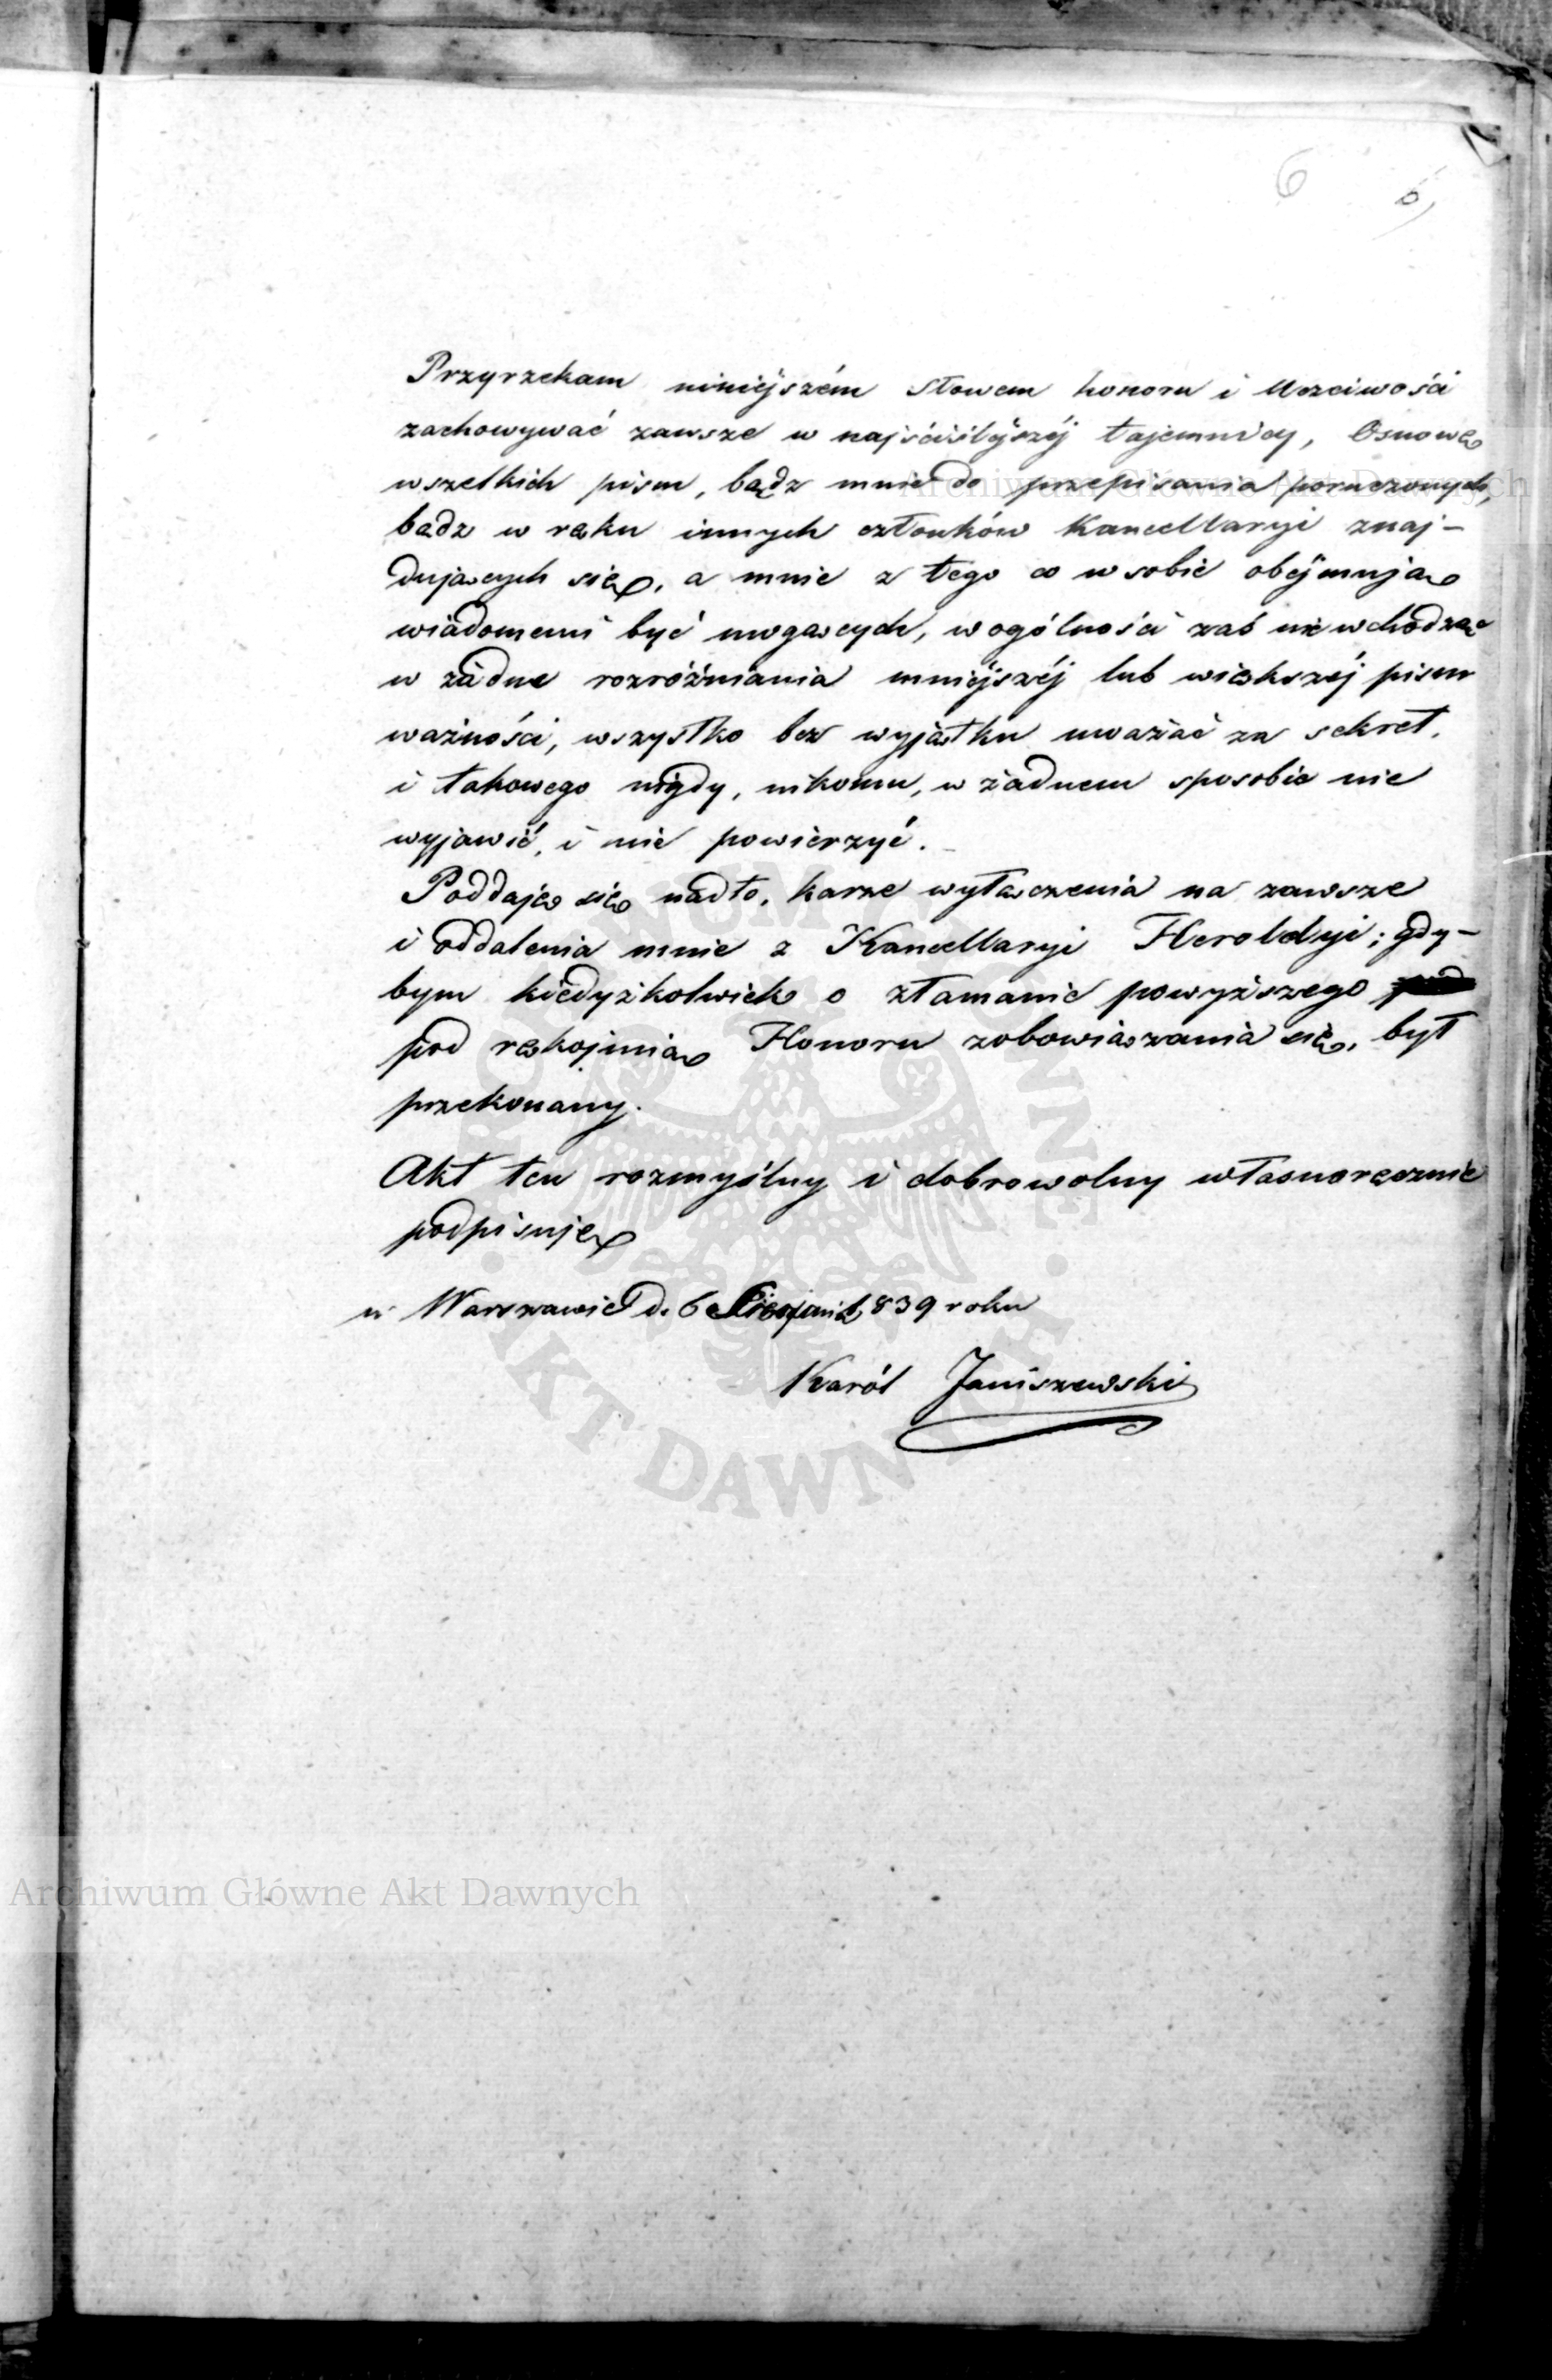 6 6)
Przyrzekam niniéjszém Słowem honoru i Uczciwości
zachowywać zawsze w najściśléjszéj tajemnicy, Osnowę
wszelkich pism, bądz mnie do przepisania poruczonych,
bądz w ręku innych członków Kancellaryi znaj-
dujących się, a mnie z tego co w sobie obéjmują
wiadomemi być mogących, w ogólności zaś nie wchodząc
w żadne rozróżniania mniéjszéj lub większéj pism
ważności, wszystko bez wyjątku uważać za sekret,
i takowego nigdy, nikomu, w żadnem sposobie nie
wyjawić, i nie powierzyć.
Poddaję się nadto, karze wyłączenia na zawsze
i oddalenia mnie z Kancellaryi Heroldyi; gdy-
bym kiedyżkolwiek o złamanie powyższego
pod rękojmią Honoru zobowiązania się, był
przekonany.
Akt ten rozmyślny i dobrowolny własnoręcznie
podpisuję
w Warszawie d. 6 Sierpnia 1839 roku
Karól Janiszewski
Archiwum Główne Akt Dawnych
Archiwum Główne Akt Dawnych
ARCHIWUM GŁÓWNE · AKT DAWNYCH ·